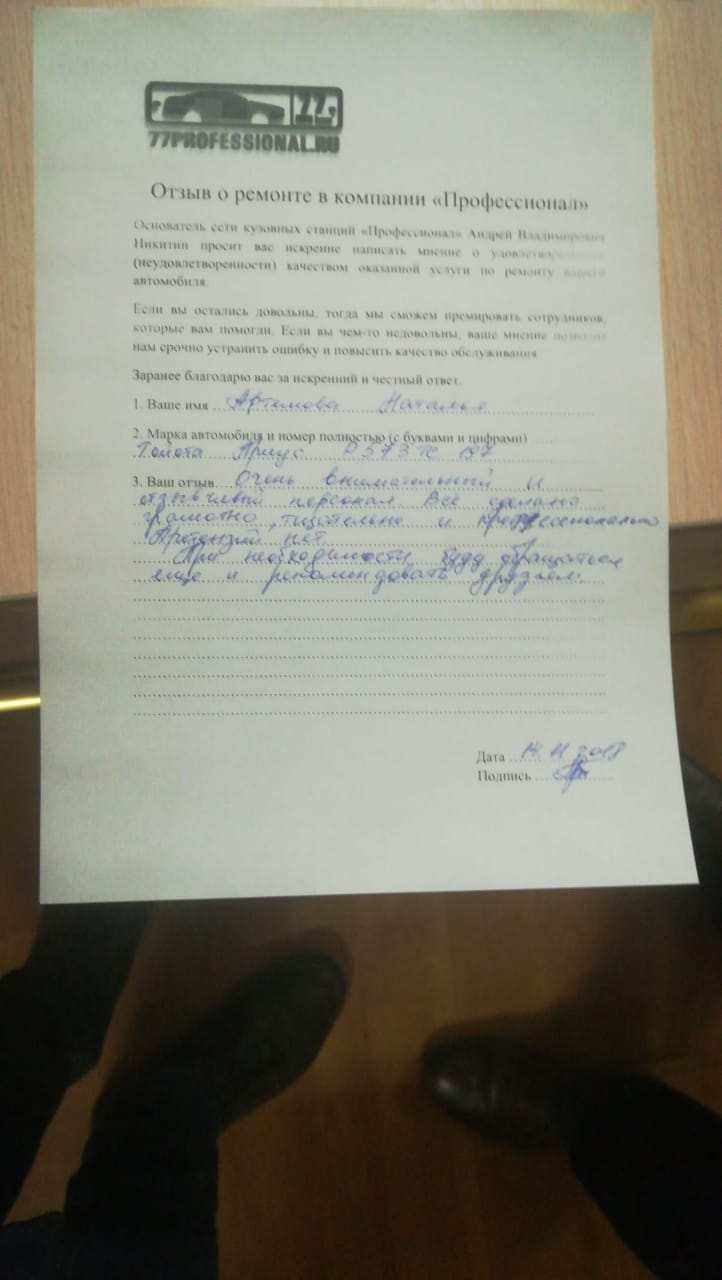 77
77PROFESSIONAL.RU
Отзыв о ремонте в компании «Профессионал»
Основатель сети кузовных станций «Профессионал» Андрей Владимирович
Никитин просит вас искренне написать мнение о удовлетворенности
(неудовлетворенности) качеством оказанной услуги по ремонту вашего
автомобиля.
Если вы остались довольны, тогда мы сможем премировать сотрудников,
которые вам помогли. Если вы чем-то недовольны, ваше мнение позволит
нам срочно устранить ошибку и повысить качество обслуживания.
Заранее благодарю вас за искренний и честный ответ.
1. Ваше имя Артамова Наталья
2. Марка автомобиля и номер полностью (с буквами и цифрами)
Тойота Приус 197
3. Ваш отзыв Очень внимательный и
отзывчивый персонал Все сделано
грамотно, тщательно и профессионально
Претензий нет.
При необходимости буду обращаться
еще и рекомендовать друзьям.
Дата 14.11.2018
Подпись